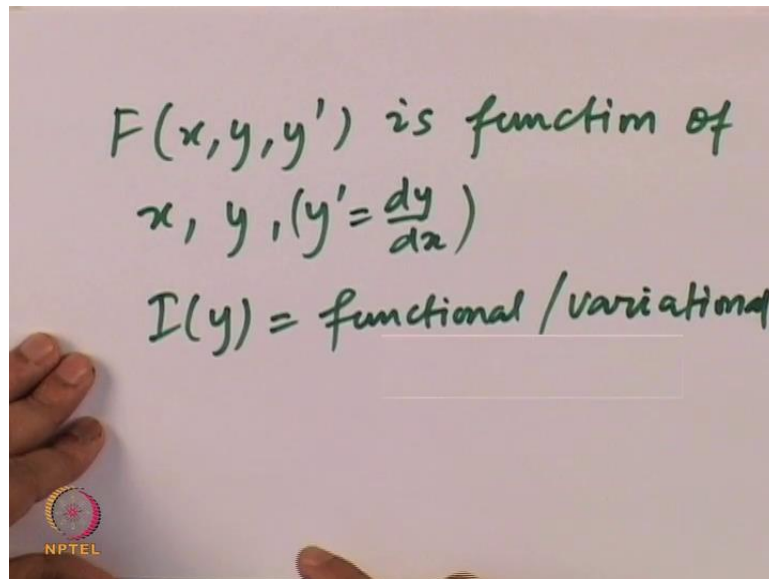 F(x, y, y') is function of
x, y, (y' = dy/dx)
I(y) = functional / variational
NPTEL